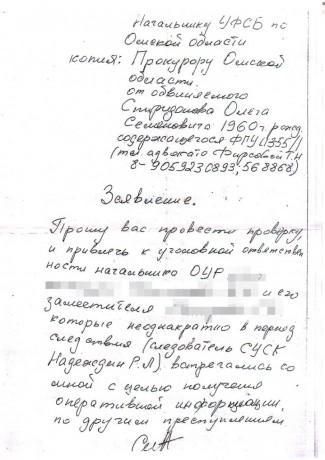 Начальнику УФСБ по
Омской области
копия: Прокурору Омской
области.
от обвиняемого
Спиридонова Олега
Семеновича 1960г. рожд.
содержащегося ФГУ
(тел. адвоката Фирсовой Т.Н
8-9059230893, 568868)
Заявление.
Прошу вас провести проверку,
и привлечь к уголовной ответствен
ности начальника ОУР
и его
заместителя
которые неоднократно в период
следствия (следователь СУСК
Надеждин Р.Л) встречались со
мной с целью получения
оперативной информации,
по другим преступлениям